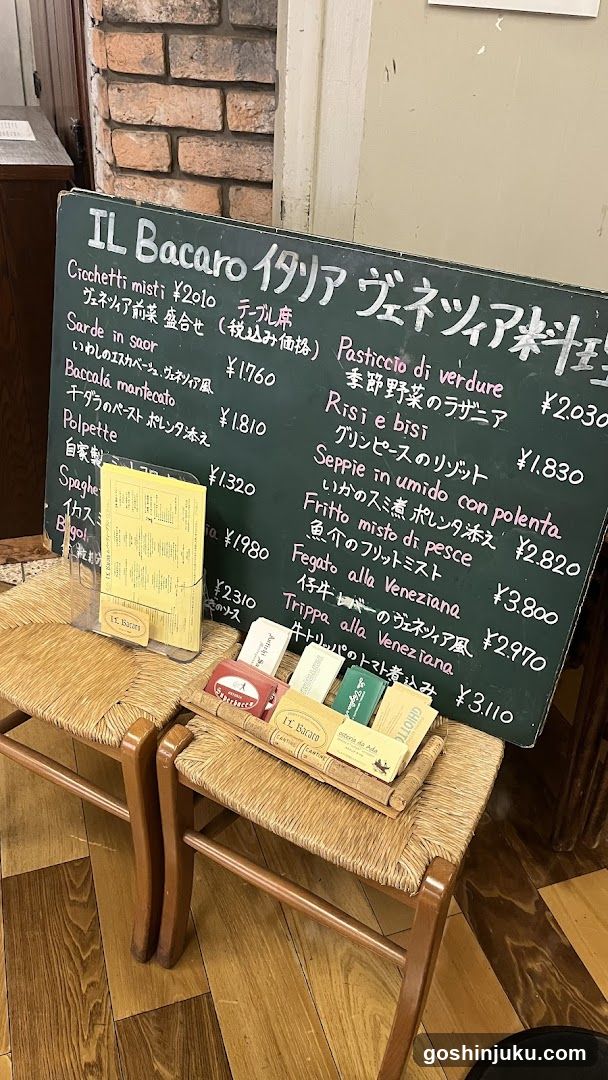 IL Bacaro イタリア ヴェネツィア料理
Cicchetti misti ¥2010 テーブル席
ヴェネツィア前菜 盛合せ (税込み価格)
Sarde in saor
いわしのエスカベージュ ヴェネツィア風 ¥1.760
Baccalá mantecato
干ダラのペースト ポレンタ添え ¥1.810
Polpette
自家製 ¥1.320
Spaghe
イカスミ ¥1.980
Bigol
¥2.310
のソース
Pasticcio di verdure
季節野菜のラザニア ¥2.030
Risi e bisi
グリンピースのリゾット ¥1.830
Seppie in umido con polenta
いかのスミ煮 ポレンタ添え ¥2.820
Fritto misto di pesce
魚介のフリットミスト ¥3.800
Fegato alla Veneziana
仔牛レバーのヴェネツィア風 ¥2.970
Trippa alla Veneziana
牛トリッパのトマト煮込み ¥3.110
IL Bacaro
IL Bacaro
osteria da Ada
goshinjuku.com